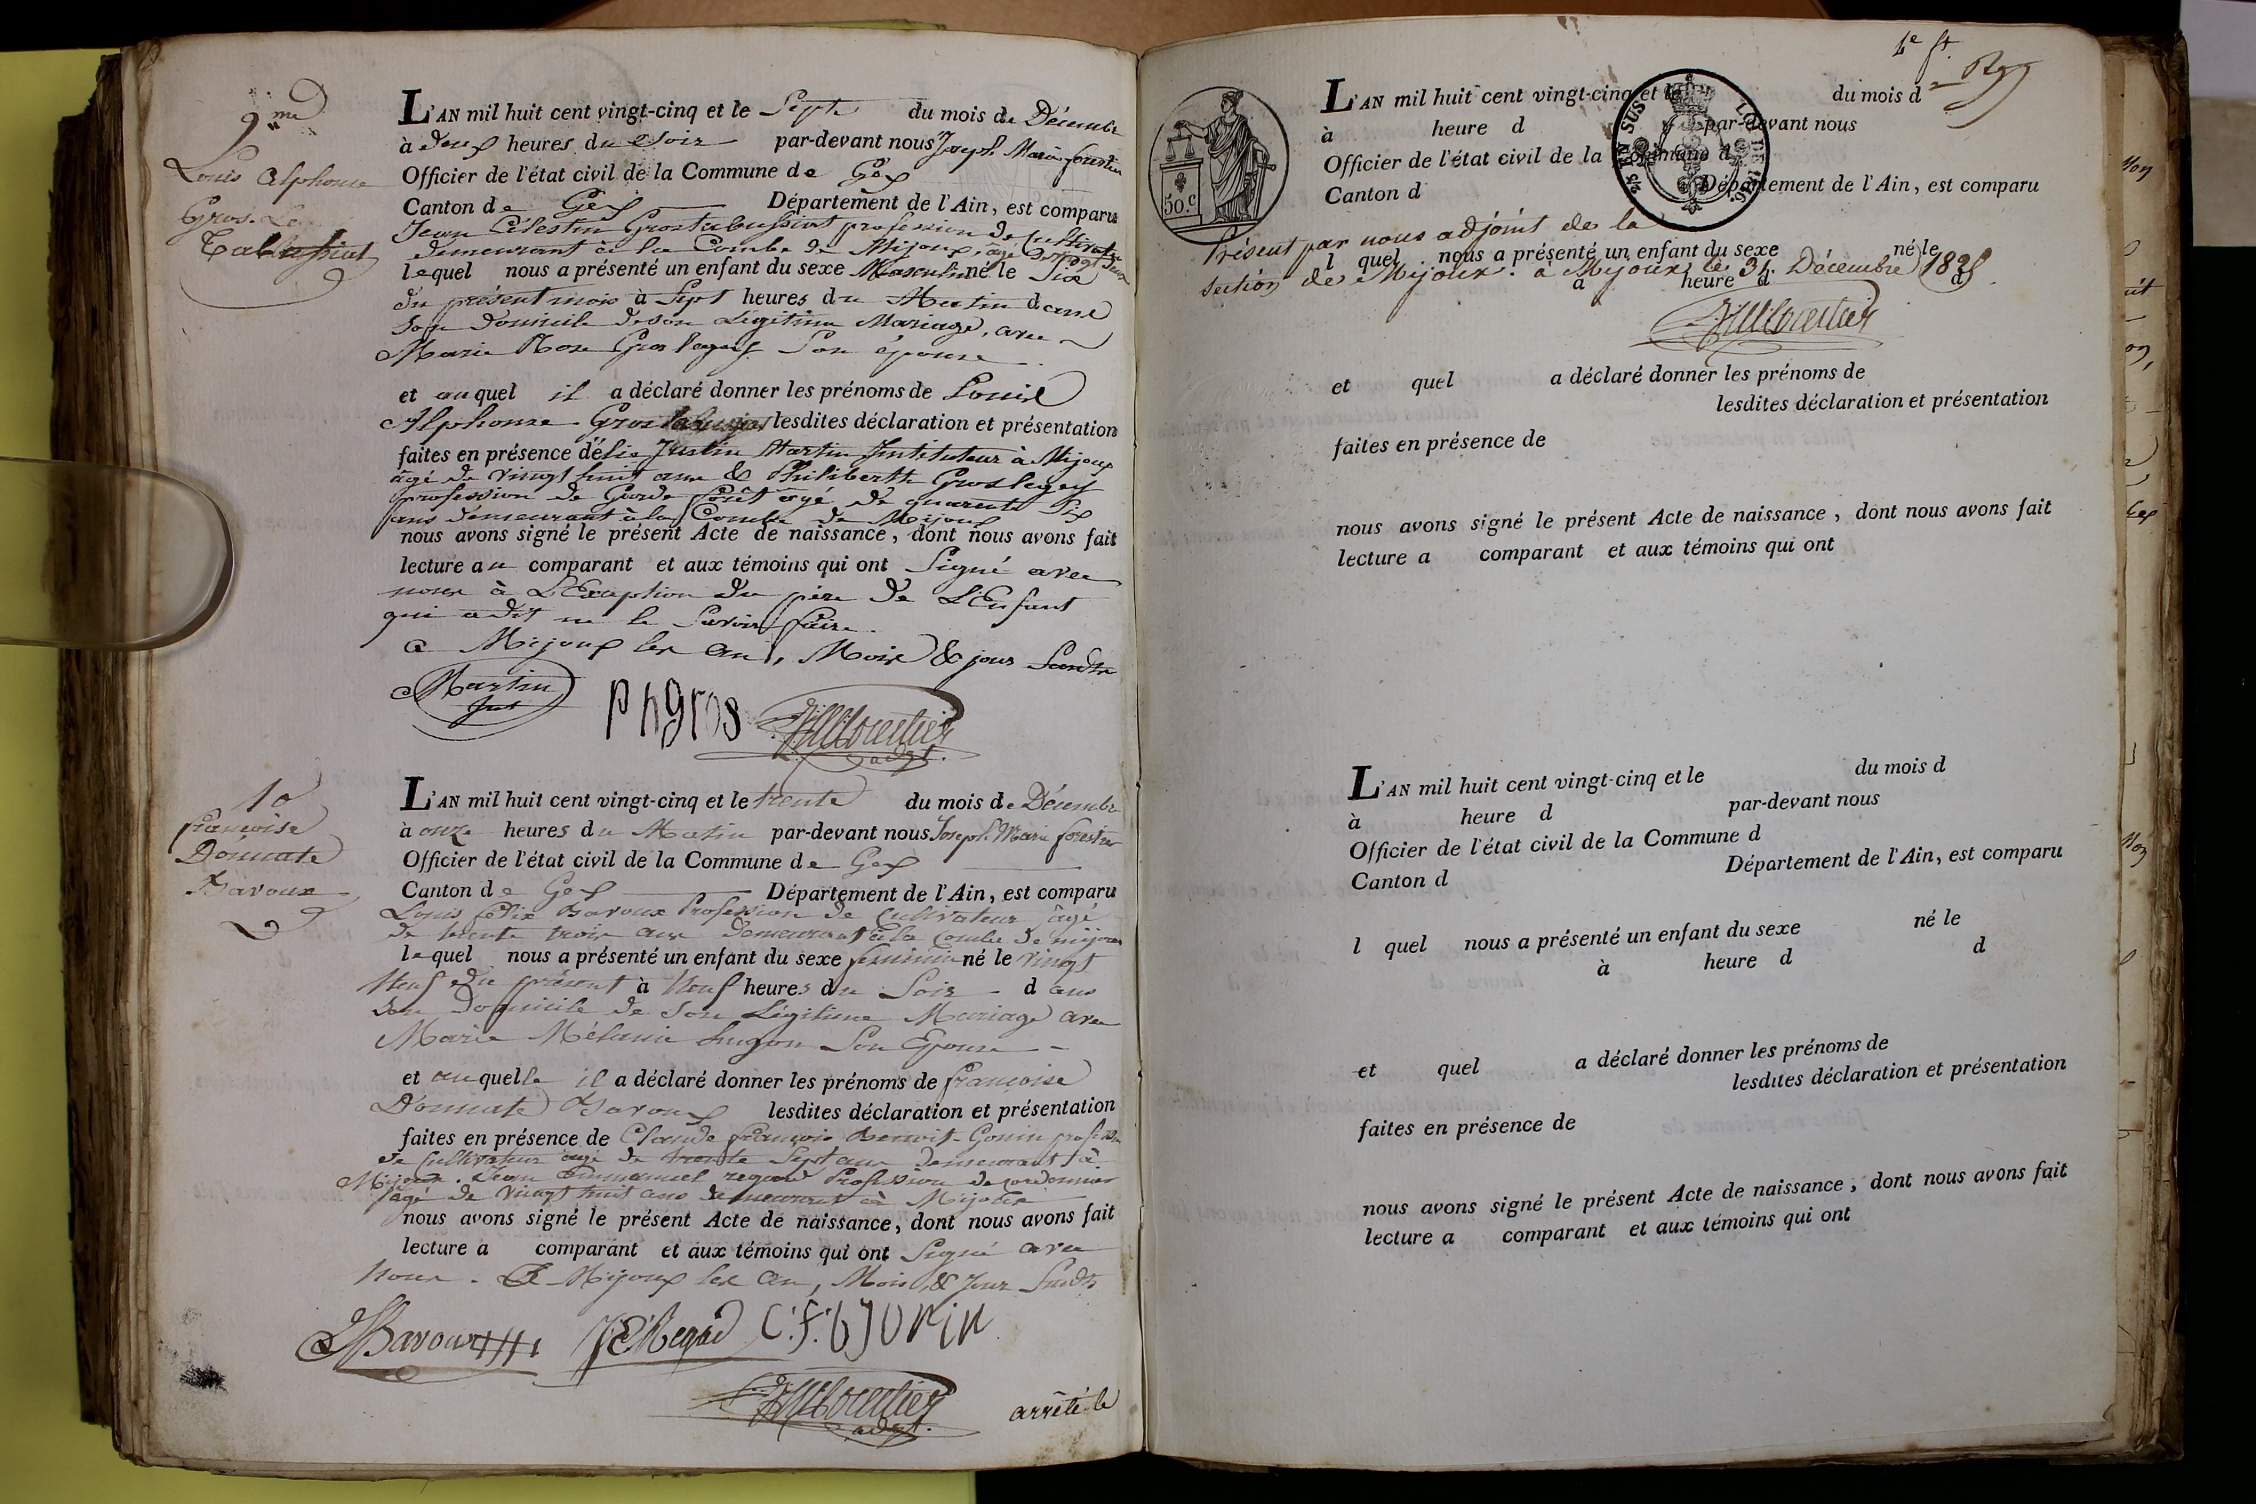 9me
Louis Alphonse
Gros
Tabussiat
L'AN mil huit cent vingt-cinq et le Sept du mois de Décembre
à deux heures du Soir par-devant nous Joseph Marie forestier
Officier de l'état civil de la Commune de Gex
Canton de Gex Département de l'Ain, est comparu
Jean Célestin Grostabussiat profession de Cultivateur
demeurant à la Combe de Mijoux, âgé
lequel nous a présenté un enfant du sexe Masculin né le Six
du présent mois à Sept heures du Matin dans
Son Domicile de son Légitime Mariage, avec
Marie Rose Grosgurin Son épouse
et auquel il a déclaré donner les prénoms de Louis
Alphonse Grostabussiat lesdites déclaration et présentation
faites en présence de Justin Martin Instituteur à Mijoux
âgé de vingt huit ans & Philiberth
profession de Garde forêt âgé de quarente Six
ans demeurant à la Combe de Mijoux
nous avons signé le présent Acte de naissance, dont nous avons fait
lecture au comparant et aux témoins qui ont Signé avec
nous à L'Exception du père de L'Enfant
qui a dit ne le Savoir faire.
a Mijoux les an, Mois & jour Susdits
Martin
Phgros
JMforestier
adjt.
10
françoise
Donnate
Baroux
L'AN mil huit cent vingt-cinq et le trente du mois de Décembre
à onze heures du Matin par-devant nous Joseph Marie forestier
Officier de l'état civil de la Commune de Gex
Canton de Gex Département de l'Ain, est comparu
Louis félix Baroux Profession de Cultivateur âgé
de trente trois ans demeurant à la combe de mijoux
lequel nous a présenté un enfant du sexe feminin né le vingt
Neuf du présent à Neuf heures du Soir dans
Son Domicile de Son Légitime Mariage avec
Marie Mélanie hugon Son Epouse
et auquelle il a déclaré donner les prénoms de françoise
Donnate Baroux lesdites déclaration et présentation
faites en présence de Claude françois Benoit-Gonin profession
de Cultivateur âgé de trente Sept ans demeurant à
Mijoux. Jean Emmanuel regad Profession de cordonnier
âgé de vingt huit ans demeurant à Mijoux
nous avons signé le présent Acte de naissance, dont nous avons fait
lecture a comparant et aux témoins qui ont Signé avec
Nous. A Mijoux les an, Mois, & Jour Susdits
Baroux JE Regad C.f.bjonin
JMforestier
adjt.
arrêté le
50.c
L'AN mil huit cent vingt-cinq et le du mois d
à heure d par-devant nous
Officier de l'état civil de la Commune d
Canton d Département de l'Ain, est comparu
EN SUS LOI DE 1816.
Présent par nous adjoint de la
l quel nous a présenté un enfant du sexe né le
section de Mijoux. à Mijoux le 31. Décembre 1825
à heure d d
JMforestier
et quel a déclaré donner les prénoms de
lesdites déclaration et présentation
faites en présence de
nous avons signé le présent Acte de naissance, dont nous avons fait
lecture a comparant et aux témoins qui ont
L'AN mil huit cent vingt-cinq et le du mois d
à heure d par-devant nous
Officier de l'état civil de la Commune d
Canton d Département de l'Ain, est comparu
l quel nous a présenté un enfant du sexe né le
à heure d d
et quel a déclaré donner les prénoms de
lesdites déclaration et présentation
faites en présence de
nous avons signé le présent Acte de naissance, dont nous avons fait
lecture a comparant et aux témoins qui ont